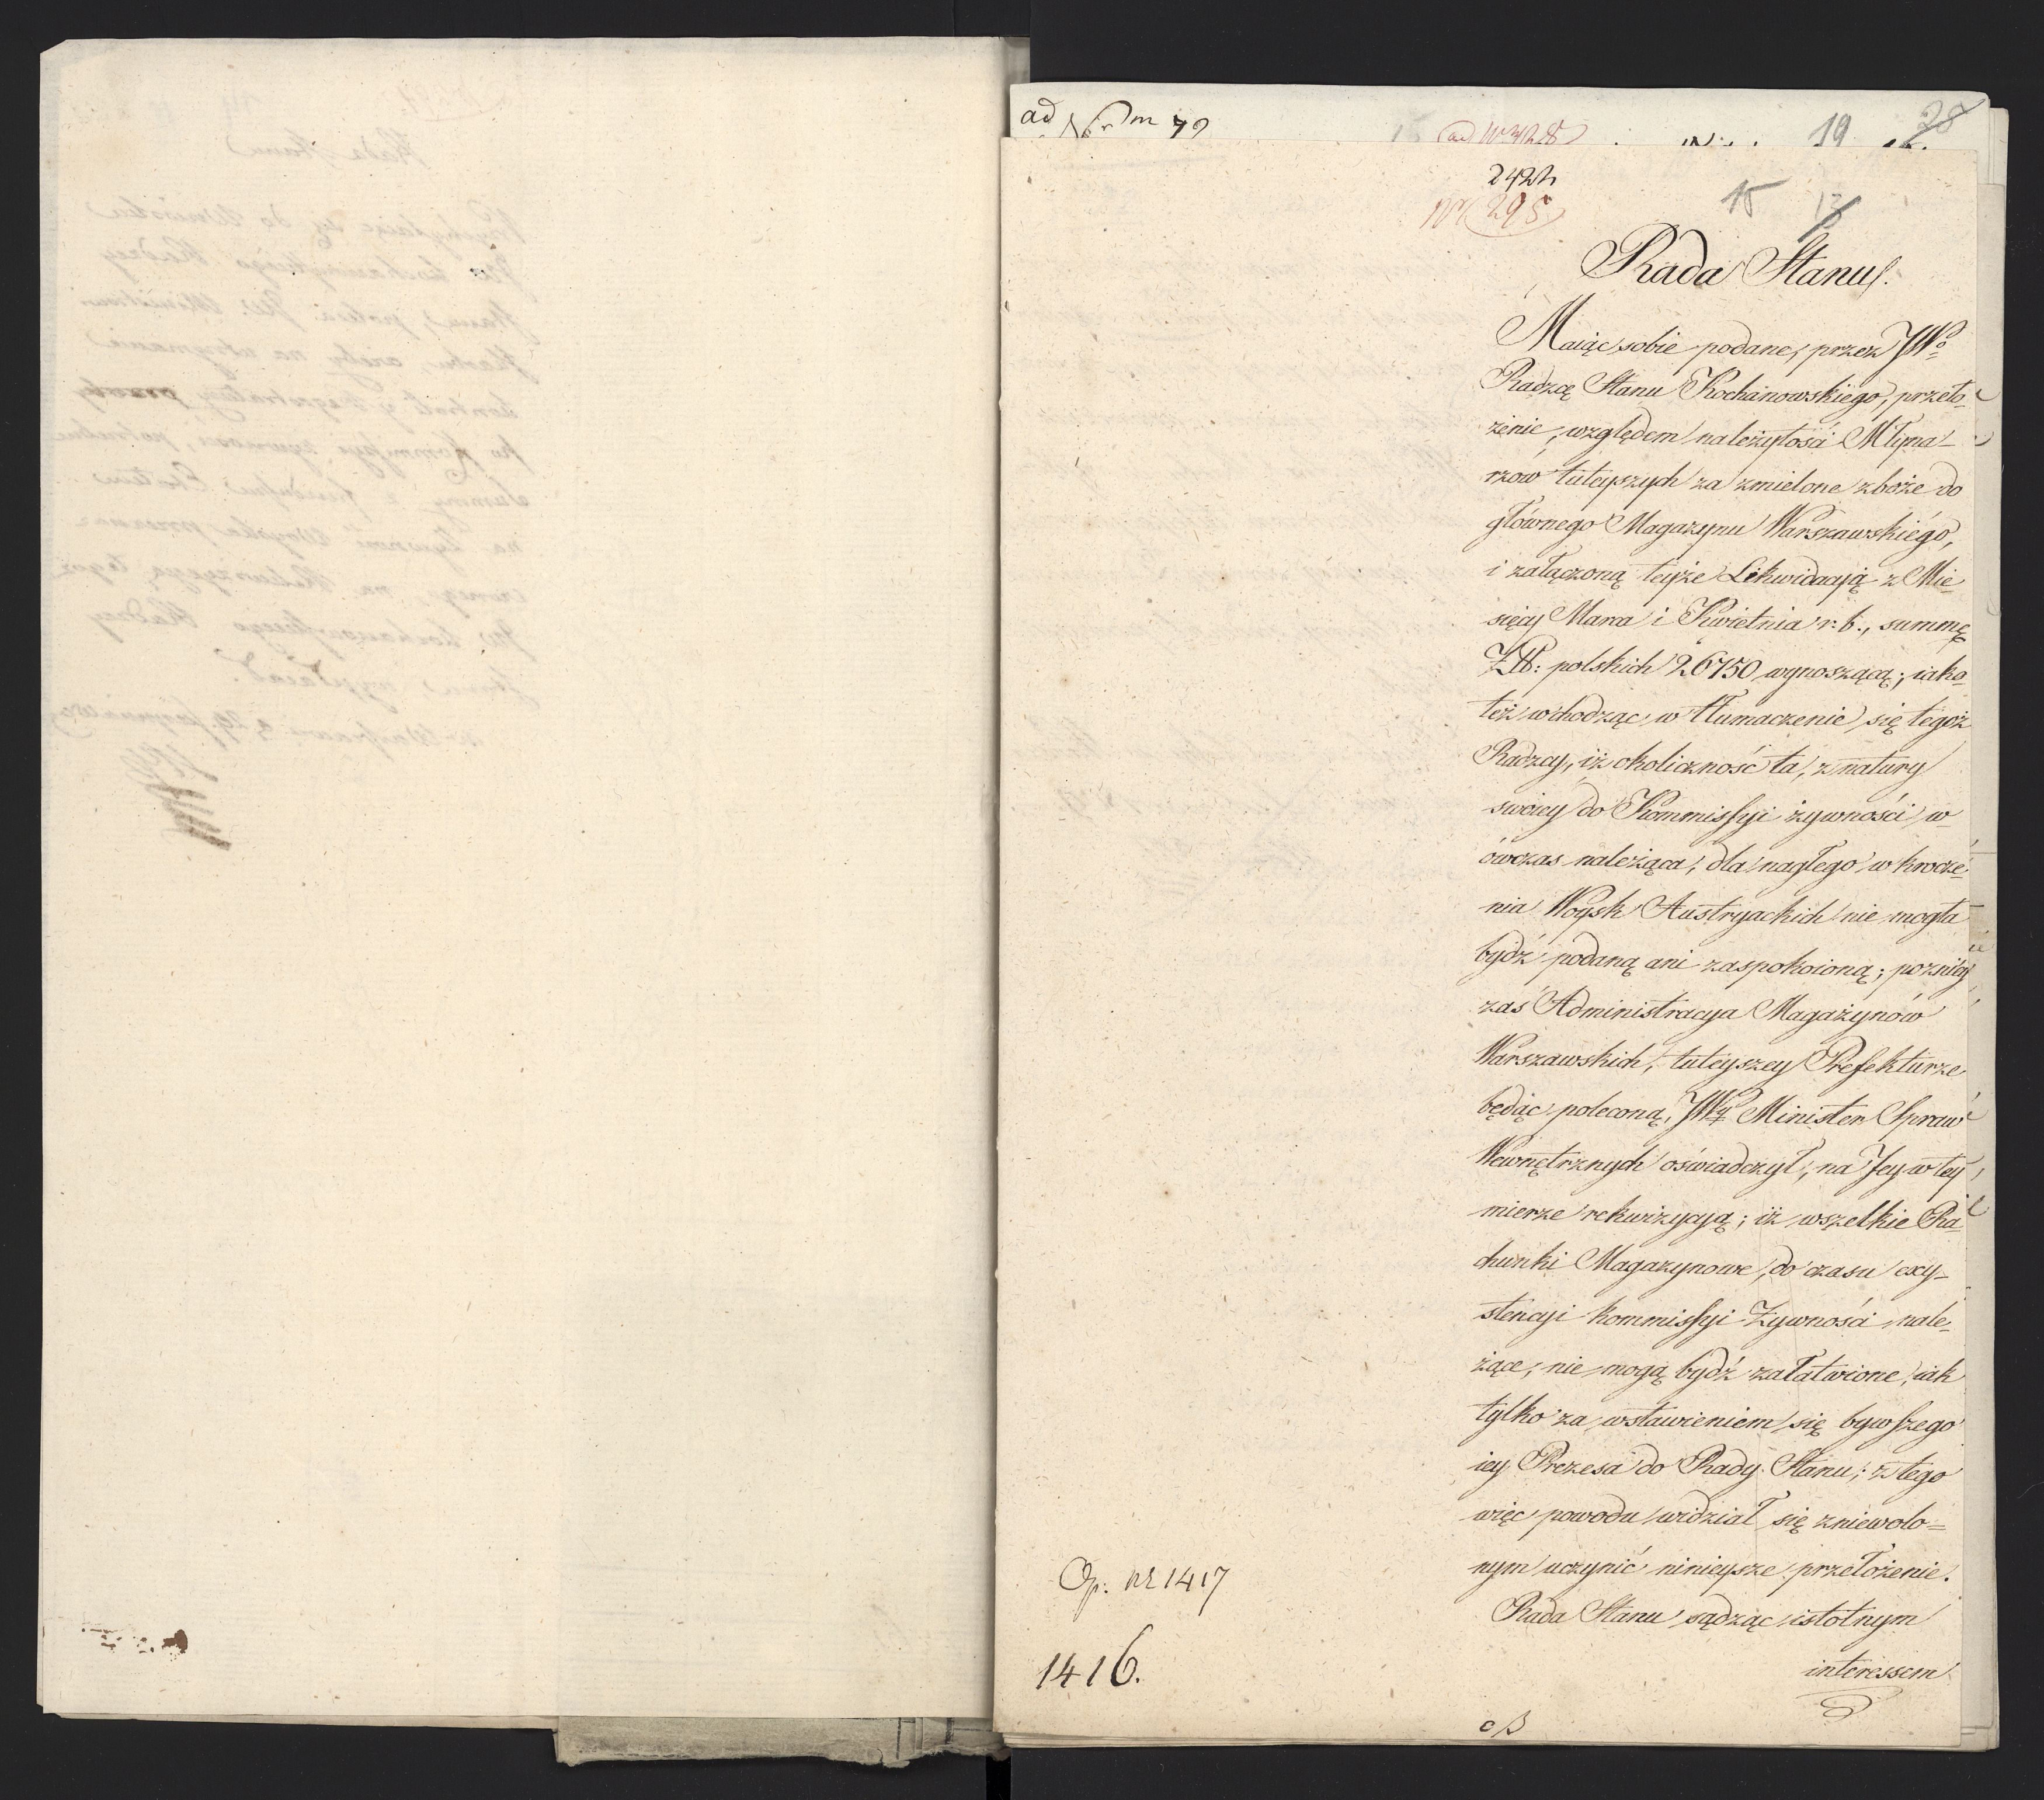 ad Nrm 79
ad Nr 428
19 28
2424
Nr 295
15 13
Rada Stanu.
Maiąc sobie podane, przez JWo
Radzcę Stanu Kochanowskiego, przeło-
żenie, względem należytości Młyna-
rzów tuteyszych za zmielone zboże do
głównego Magazynu Warszawskiégo,
i załączoną teyże Likwidacyią z Mie-
sięcy Marca i Kwietnia r. b., summę
Złł: polskich 26750 wynoszącą; iako-
też wchodząc w tłumaczenie się tegoż
Radzcy, iż okoliczność ta, z natury
swoiey do Kommissyi żywności w-
ówczas należąca, dla nagłego wkrocze-
nia Woysk Austryackich nie mogła
bydź podaną ani zaspokoioną; pozniéy
zaś Administracya Magazynów
Warszawskich, tuteyszey Prefekturze
będąc poleconą, JWy Minister Spraw
Wewnętrznych oświadczył, na Jey w tey
mierze rekwizycyą; iż wszelkie Ra-
chunki Magazynowe, do czasu exy-
stencyi Kommissyi Żywności nale-
żące, nie mogą bydź załatwione, iak
tylko za wstawieniem się bywszego
iey Prezesa do Rady Stanu; z tego
więc powodu widział się zniewolo-
nym uczynić ninieysze przełożenie.
Rada Stanu sądząc istotnym
interessem
Op: nr 1417
1416.